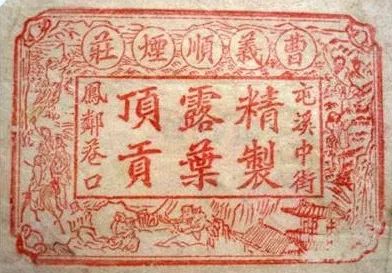 曹義順煙莊
屯溪中街
精製
露葉
頂貢
鳳鄰巷口